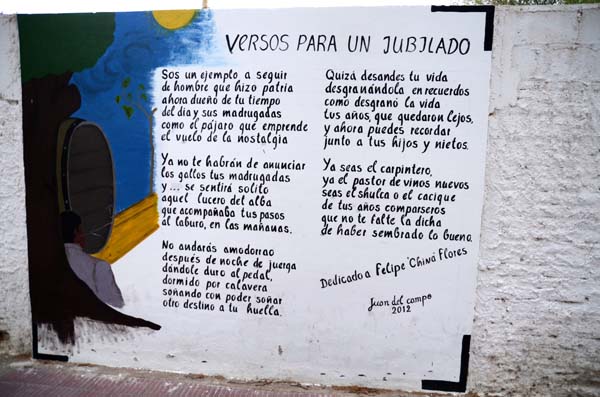 VERSOS PARA UN JUBILADO
Sos un ejemplo a seguir
de hombre que hizo patria
ahora dueño de tu tiempo
del día y sus madrugadas
como el pájaro que emprende
el vuelo de la nostalgia
Ya no te habrán de anunciar
los gallos tus madrugadas
y ... se sentirá solito
aquel lucero del alba
que acompañaba tus pasos
al laburo, en las mañanas.
No andarás amodorrao
después de noche de juerga
dándole duro al pedal,
dormido por calavera
soñando con poder soñar
otro destino a tu huella.
Quizá desandes tu vida
desgranándola en recuerdos
como desgranó la vida
tus años, que quedaron lejos,
y ahora puedes recordar
junto a tus hijos y nietos.
Ya seas el carpintero,
ya el pastor de vinos nuevos
seas el shulca o el cacique
de tus años comparseros
que no te falte la dicha
de haber sembrado lo bueno.
Dedicado a Felipe "Chino" Flores
Juan del campo
2012